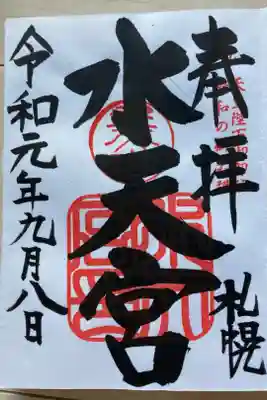 奉拝
札幌
水天宮
令和元年九月八日